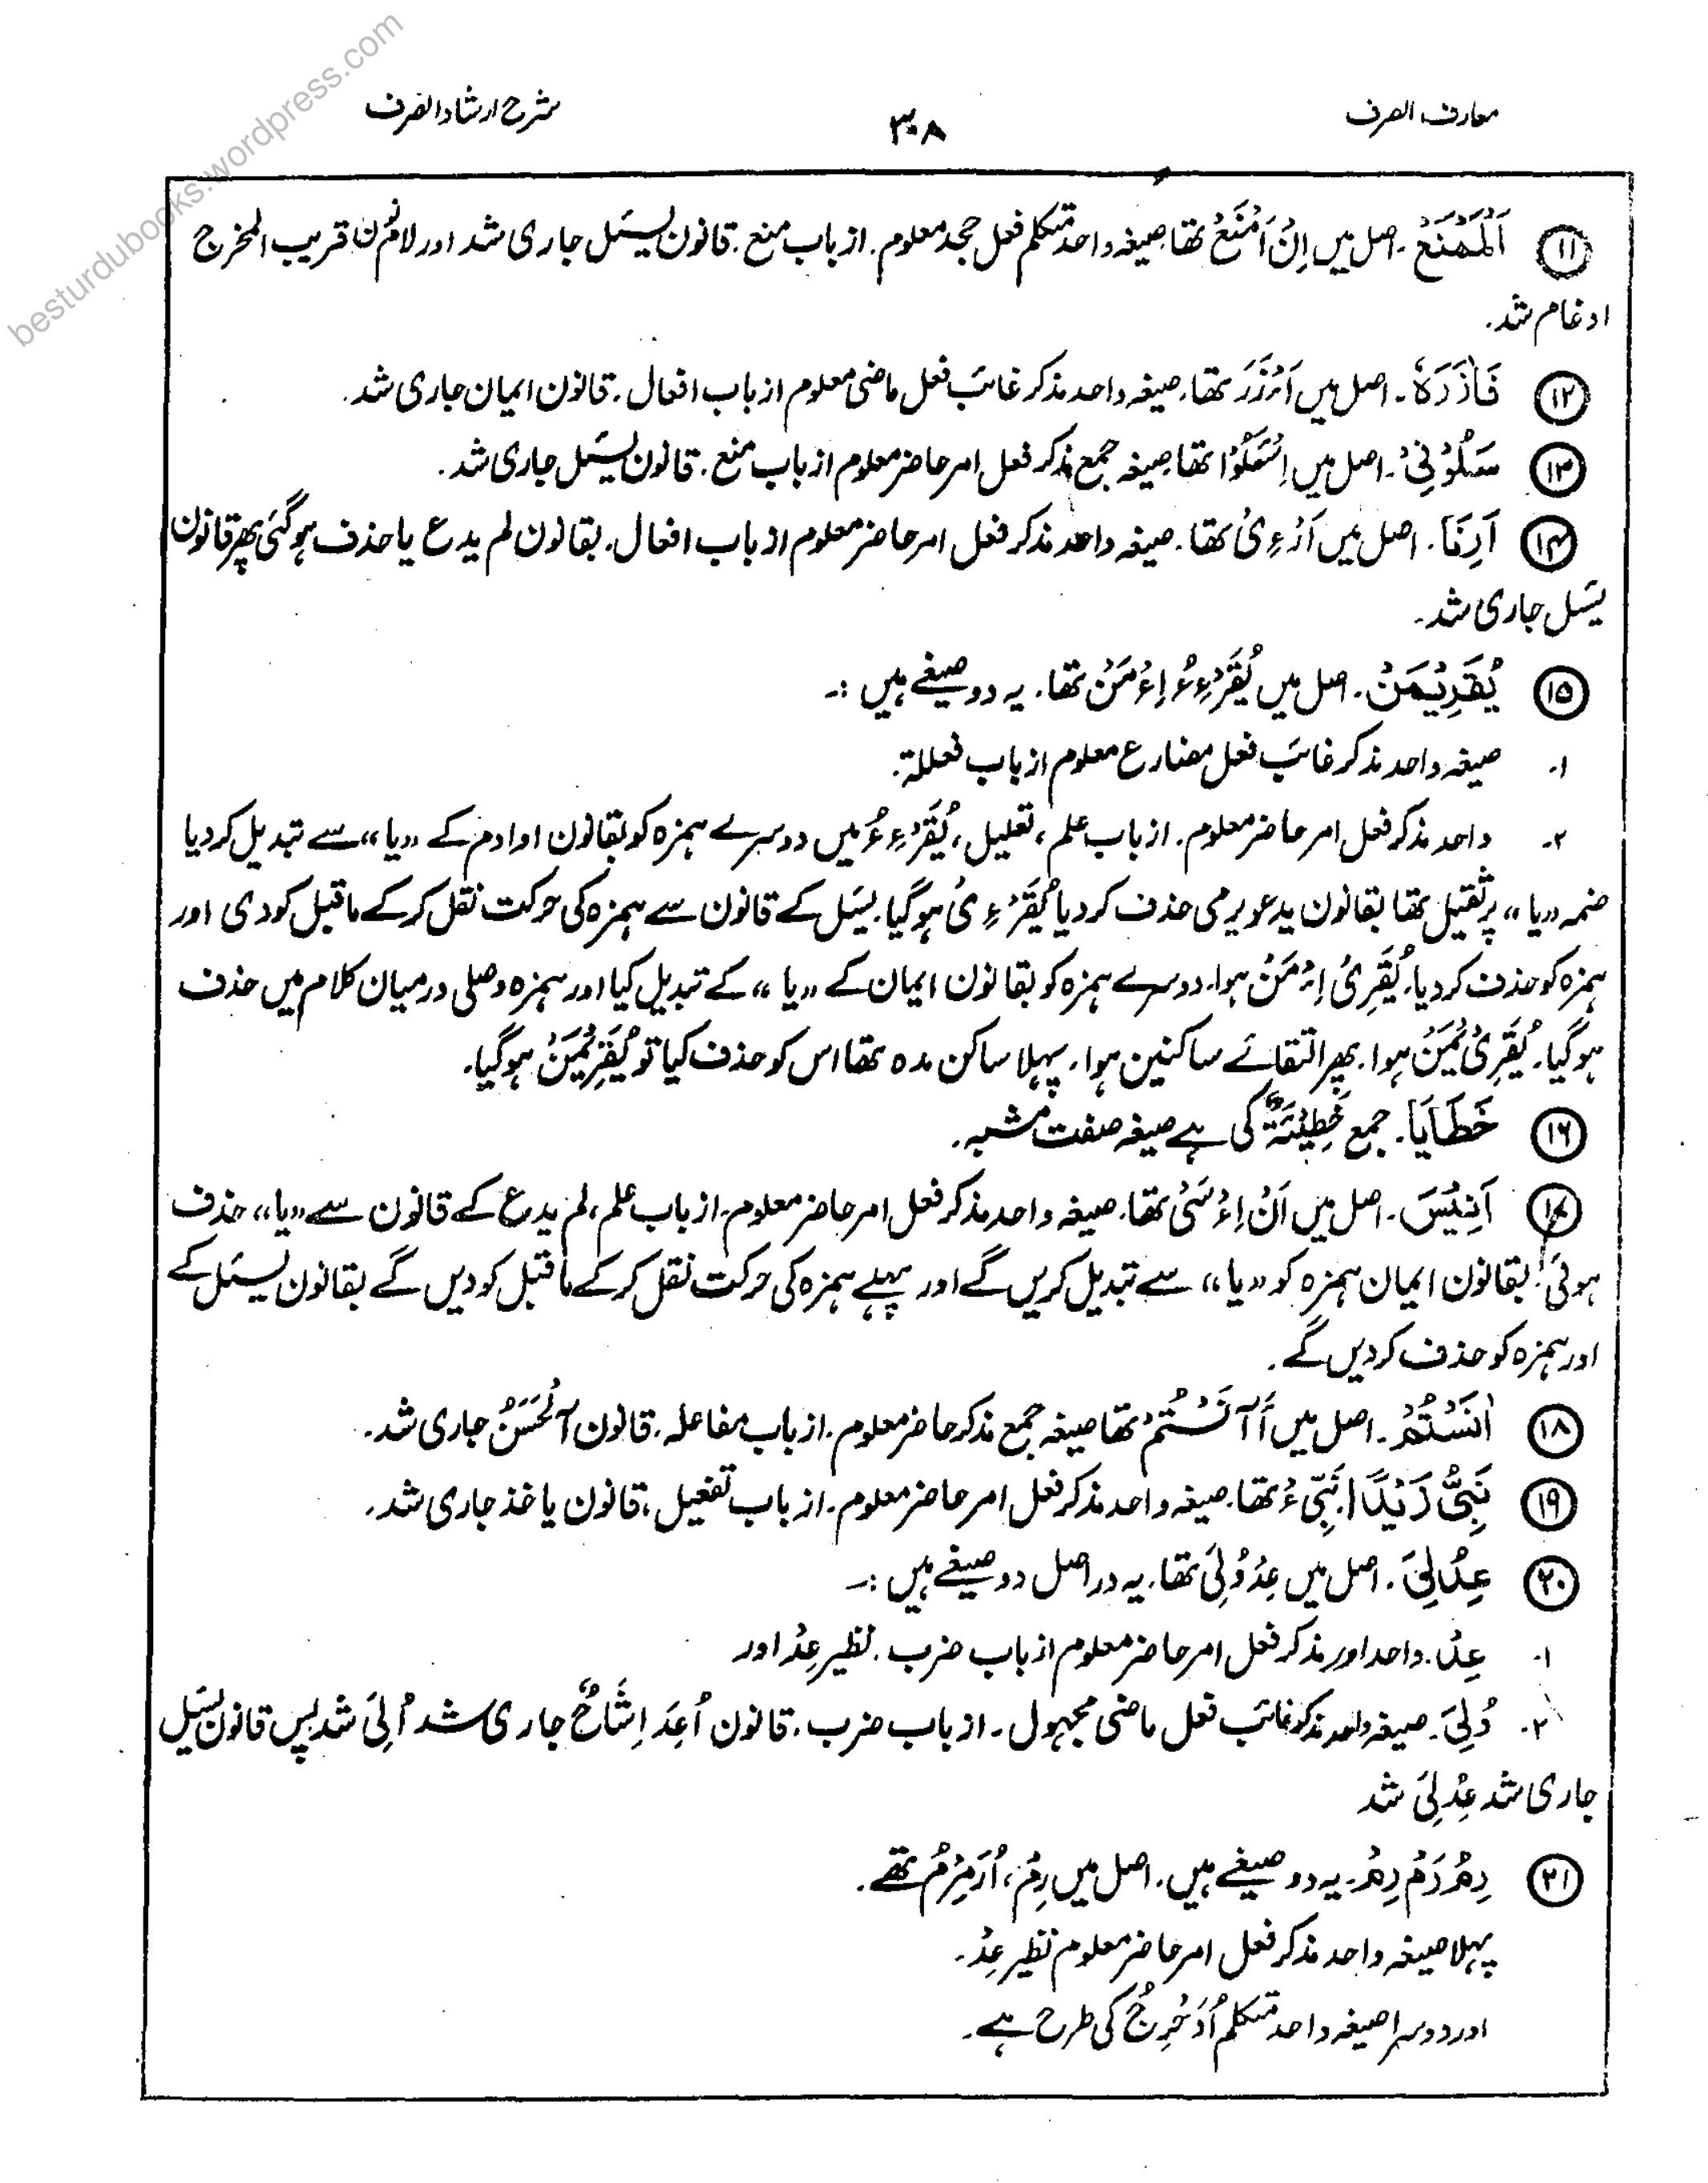 معارف الصرف
۳۰۸
شرح ارشاد الصرف
besturdubooks.wordpress.com
⑪ اَلَمْمَنَعْ ۔ اصل میں اِنْ اَمْنَعْ تھا صیغہ واحد متکلم فعل جحد معلوم. از باب منع. قانون یسئل جاری شد اور لام نون قریب المخرج
ادغام شد.
⑫ فَاٰزَرَہٗ ۔ اصل میں اَءْزَرَ تھا. صیغہ واحد مذکر غائب فعل ماضی معلوم از باب افعال. قانون ایمان جاری شد.
⑬ سَلُوْنِیْ ۔ اصل میں اِسْئَلُوْا تھا صیغہ جمع مذکر فعل امر حاضر معلوم از باب منع. قانون یسئل جاری شد.
⑭ اَرِنَا. اصل میں اَرْءِیْ تھا. صیغہ واحد مذکر فعل امر حاضر معلوم از باب افعال. بقانون لم یدع یا حذف ہوگئی پھر قانون
یسئل جاری شد.
⑮ یُقَرِیْمَنْ. اصل میں یُقَرْءِءُ اِءْمَنْ تھا. یہ دو صیغے ہیں :۔
۱۔ صیغہ واحد مذکر غائب فعل مضارع معلوم از باب فعللۃ.
۲۔ واحد مذکر فعل امر حاضر معلوم. از باب علم، تعلیل، یُقَرْءِءُ میں دوسرے ہمزہ کو بقانون اوادم کے ”یا“ سے تبدیل کردیا
ضمہ ”یا“ پر ثقیل تھا بقانون یدعو یرمی حذف کردیا یُقَرْءِیْ ہوگیا. یسئل کے قانون سے ہمزہ کی حرکت نقل کرکے ماقبل کو دی اور
ہمزہ کو حذف کردیا. یُقَرِیْ اِءْمَنْ ہوا. دوسرے ہمزہ کو بقانون ایمان کے ”یا“ کے تبدیل کیا اور ہمزہ وصلی درمیان کلام میں حذف
ہوگیا. یُقَرِیْ یْمَنْ ہوا. پھر التقائے ساکنین ہوا. پہلا ساکن مدہ تھا اس کو حذف کیا تو یُقَرِیْمَنْ ہوگیا.
⑯ خَطَایَا. جمع خَطِیْئَۃٌ کی ہے صیغہ صفت مشبہ.
⑰ اَنِیْسَ ۔ اصل میں اَنْ اِءْسَیْ تھا. صیغہ واحد مذکر فعل امر حاضر معلوم. از باب علم، لم یدع کے قانون سے ”یا“ حذف
ہوئی. بقانون ایمان ہمزہ کو ”یا“ سے تبدیل کریں گے اور پہلے ہمزہ کی حرکت نقل کرکے ماقبل کو دیں گے بقانون یسئل کے
اور ہمزہ کو حذف کردیں گے.
⑱ اٰنَسْتُمْ ۔ اصل میں أَآنَسْتُمْ تھا صیغہ جمع مذکر حاضر معلوم. از باب مفاعلہ. قانون آلْحَسَنُ جاری شد.
⑲ نَبِّیْ زَیْدًا. نَبِّیءْ تھا. صیغہ واحد مذکر فعل امر حاضر معلوم. از باب تفعیل، قانون یاخذ جاری شد.
⑳ عِدُلِیَ. اصل میں عِدْ وُلِیَ تھا. یہ در اصل دو صیغے ہیں :۔
۱۔ عِدْ. واحد اور مذکر فعل امر حاضر معلوم از باب ضرب. نظیر عِدْ اور
۲۔ وُلِیَ. صیغہ واحد مذکر غائب فعل ماضی مجہول ۔ از باب ضرب. قانون اُعِدَ اِشَاحٌ جاری شد اُلِیَ شد پس قانون یسئل
جاری شد عِدُلِیَ شد
㉑ رِمْ رَمْ رِمْ. یہ دو صیغے ہیں. اصل میں رِمْ، اُرَمْرِمُ تھے.
پہلا صیغہ واحد مذکر فعل امر حاضر معلوم نظیر عِدْ.
اور دوسرا صیغہ واحد متکلم اُدَحْرِجُ کی طرح ہے.